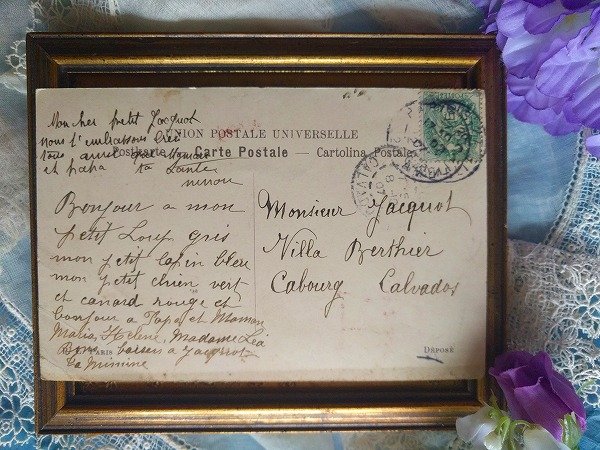 Mon cher petit Jacquot
nous t'embrassons bien
tous ainsi que Maman
et papa ta Tante
minou
UNION POSTALE UNIVERSELLE
Postkarte — Carte Postale — Cartolina Postale
Bonjour a mon
petit Loup gris
mon petit lapin bleu
mon petit chien vert
et canard rouge et
bonjour a Papa et Maman
Maria, Helene, Madame Léa
Bons baisers a Jacquot
ta minine
PARIS
Monsieur Jacquot
Villa Berthier
Cabourg Calvados
DÉPOSÉ